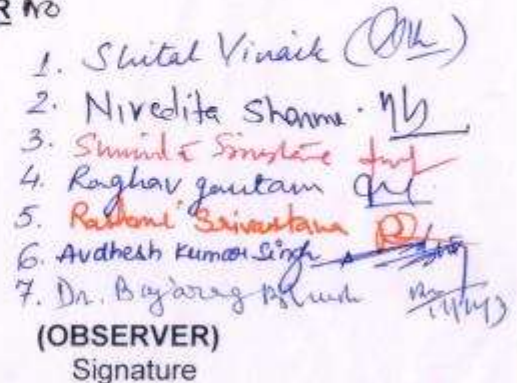 R NO
1. Shital Vinaik
2. Nivedita Sharma.
3.
4. Raghav gautam
5. Rashmi Srivastava
6. Avdhesh Kumar Singh
7. Dr. Bajarag
(OBSERVER)
Signature